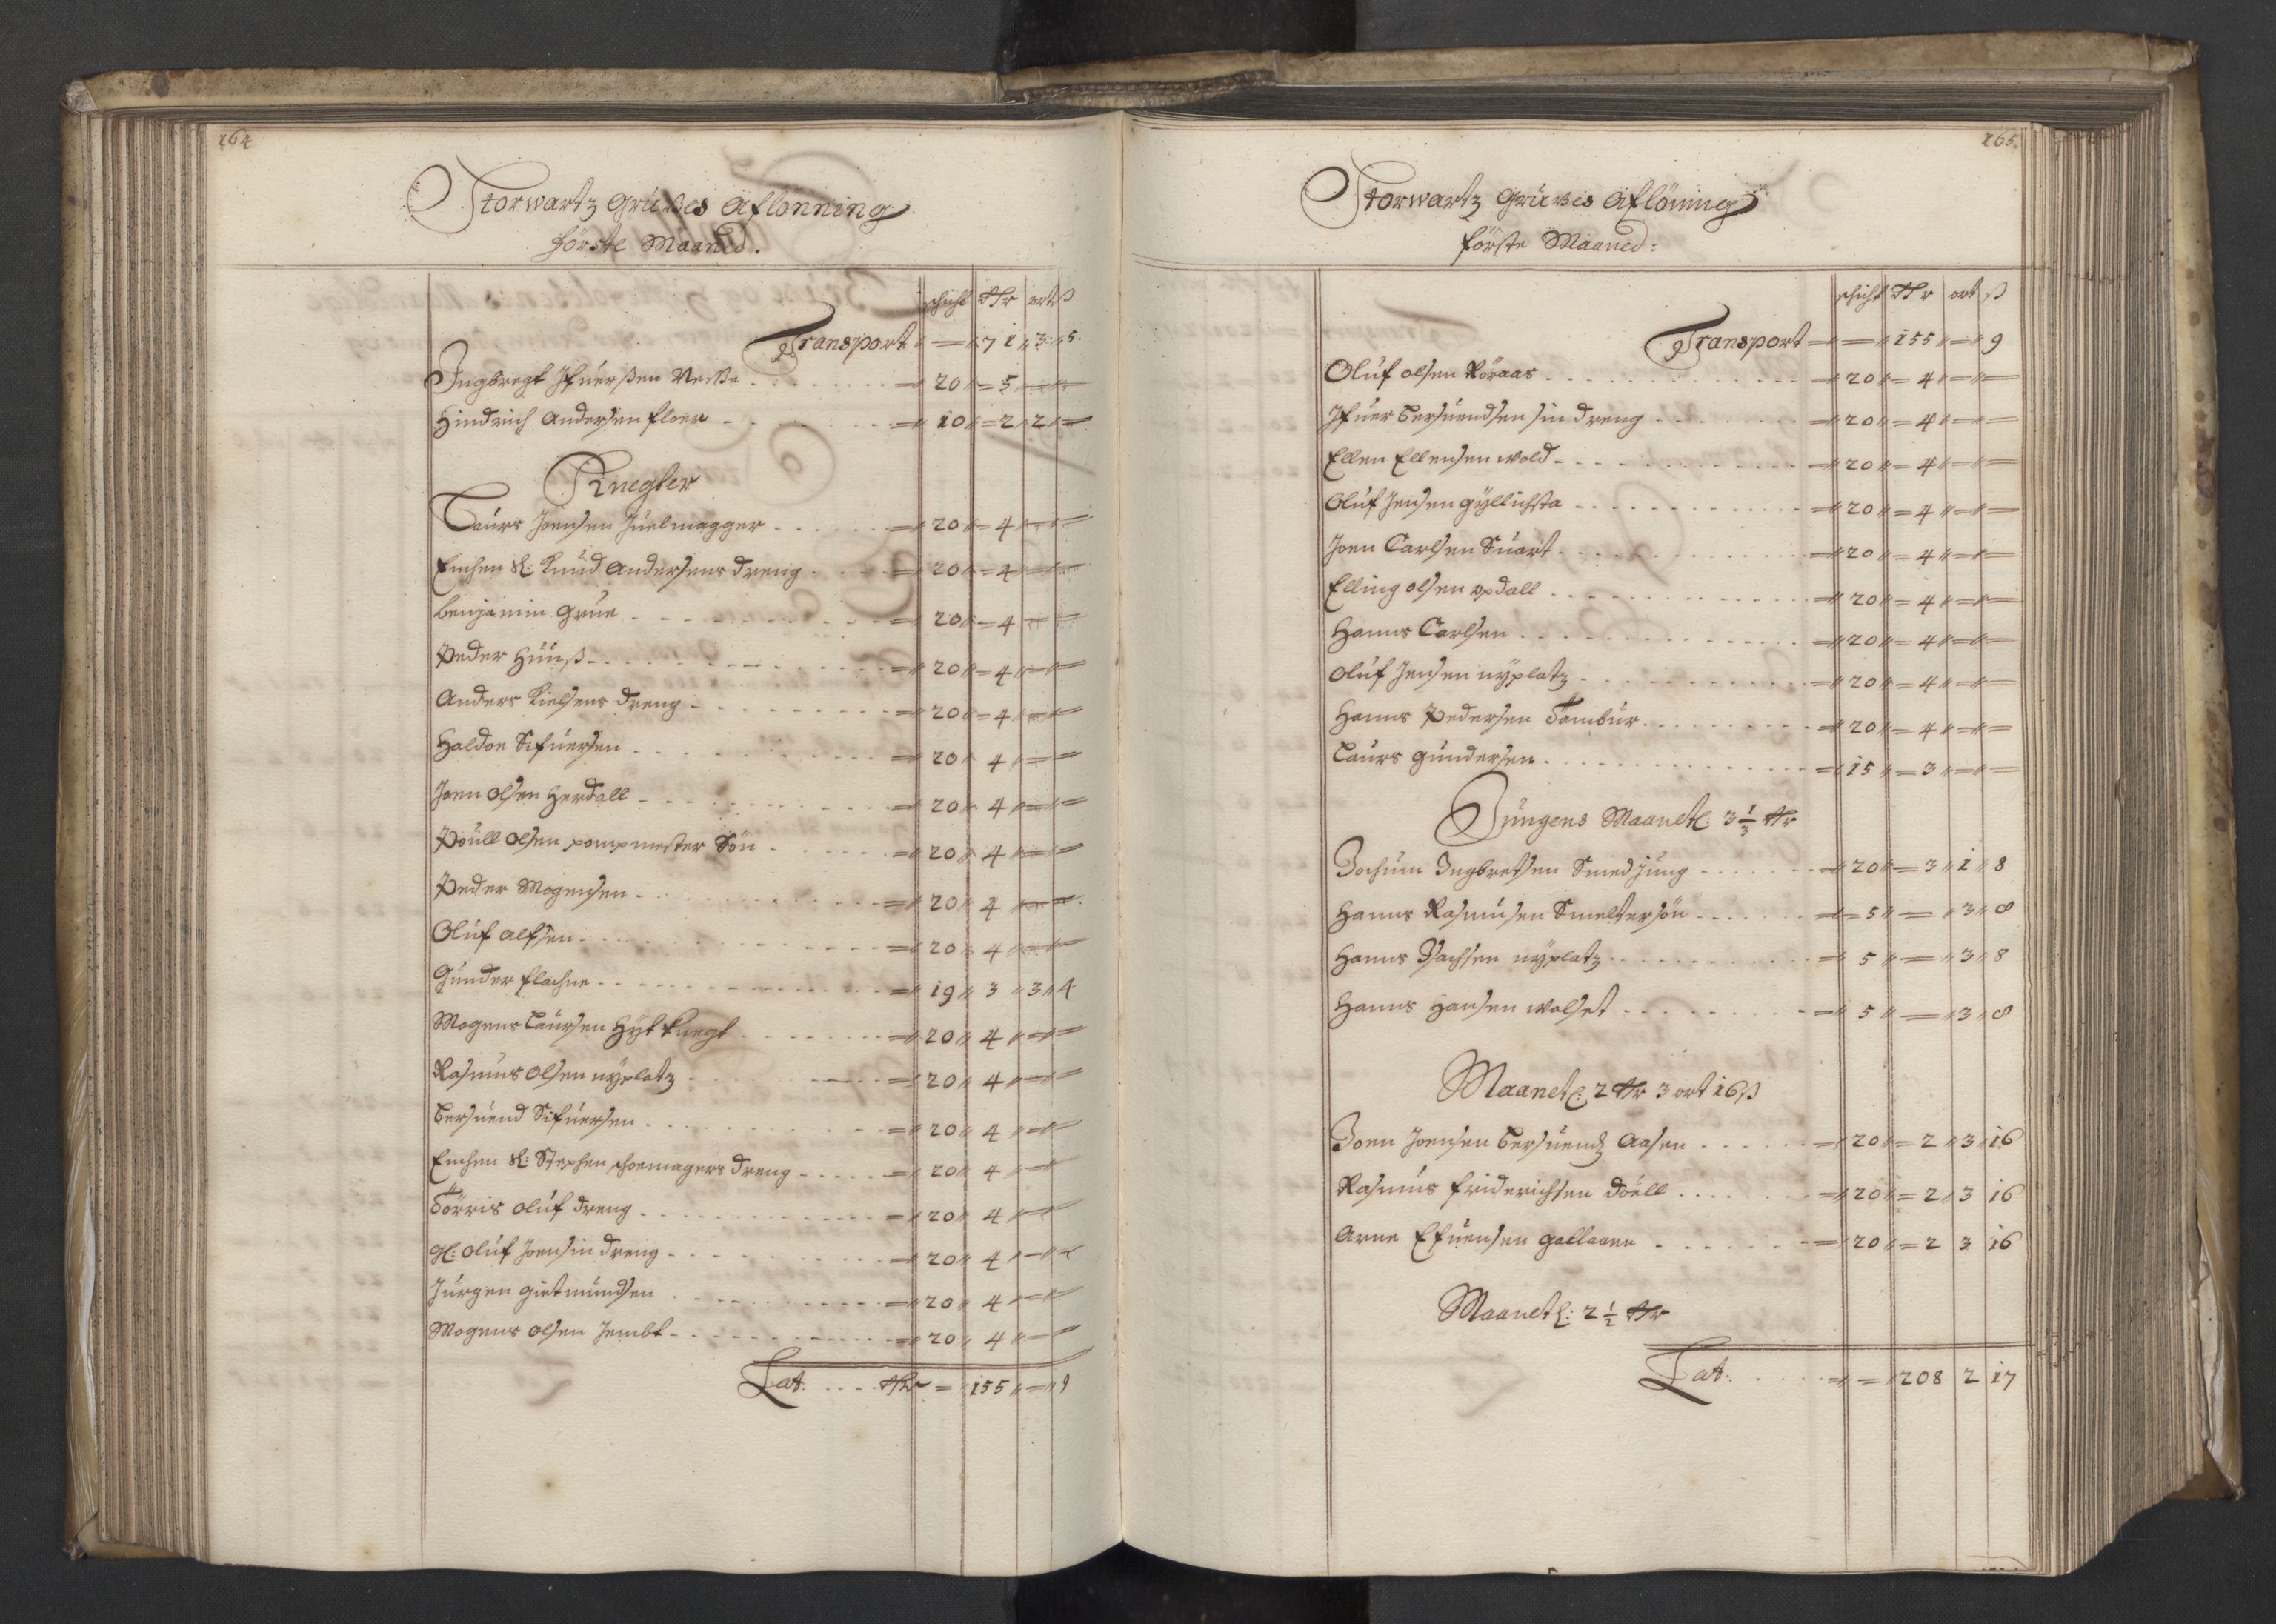 164
Storwartz Grubes Aflønning
første Maaned.
schicht Rdr ort ß
Transport = 71 3 5
Ingbregt Ifuerßen Neße 20 = 5
Hindrich Andersen floer 10 = 2 2
Knegter
Laurs Joensen Juelmagger 20 = 4
Encken Sl: Knud Andersens dreng 20 = 4
Benjamin Grue 20 = 4
Peder Huuß 20 = 4
Anders Kielsens dreng 20 = 4
Haldor Sifuersen 20 4
Joen Olsen Herdall 20 4
Pouell Olsen pompmester Søn 20 4
Peder Mogensen 20 4
Oluf Alfsen 20 4
Gunder flachne 19 3 3 4
Mogens Laursen Hytknegt 20 4
Rasmus Olsen nyplatz 20 4
Bersuend Sifuersen 20 4
Encken Sl: Stephen schoemagers dreng 20 4
Tørris Oluf dreng 20 4
Gl: Oluf Joen sin dreng 20 4
Jürgen gietmundsen 20 4
Mogens Olsen Jembt 20 4
Lat. Rdr = 155 = 9
165.
Storwartz Grubes Afløning
første Maaned:
schicht Rdr ort ß
Transport = 155 = 9
Oluf Olsen Röraas 20 = 4
Ifuer Bersuendsen sin dreng 20 = 4
Ellen Ellensen Wold 20 = 4
Oluf Jensen gyllichsta 20 = 4
Joen Carlsen Suart 20 = 4
Elling Olsen opdall 20 = 4
Hanns Carlsen 20 = 4
Oluf Jensen nyplatz 20 = 4
Hanns Pedersen Tambur 20 = 4
Laurs gundersen 15 = 3
Jungens Maanetl: 3 1/3 Rdr
Jochum Ingbretsen Smedjung 20 = 3 1 8
Hanns Rasmusen Smeltersøn 5 = 3 8
Hanns Isachsen nyplatz 5 = 3 8
Hanns Hansen Wolset 5 = 3 8
Maanetl: 2 Rdr 3 ort 16 ß
Joen Joensen Bersuendz Aasen 20 = 2 3 16
Rasmus friderichsen Döell 20 = 2 3 16
Arne Efuensen gallaaen 20 = 2 3 16
Maanetl: 2 1/2 Rdr
Lat. = 208 2 17